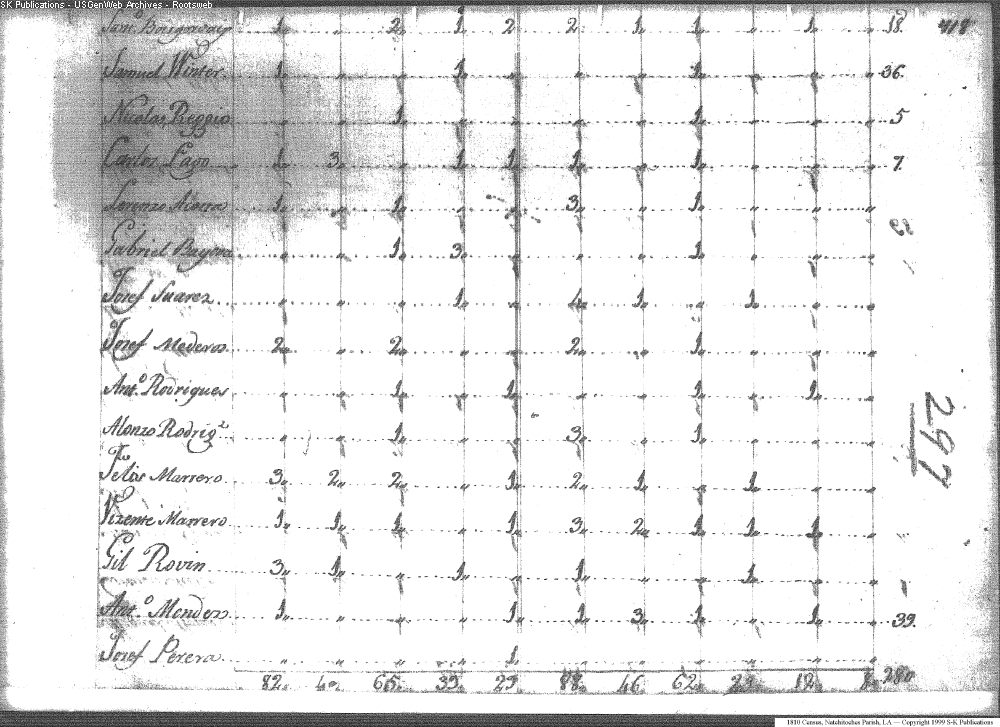 SK Publications - USGenWeb Archives - Rootsweb
1 „ 2 1 2 2 1 1 „ 1 „ 18. 418
Samuel Winter 1 „ „ 1 „ „ „ 1 „ „ 36.
Nicolas Reggio „ „ 1 „ „ „ „ 1 „ „ 5
Carlos Lago 1 3 „ 1 1 1 „ 1 „ „ 7.
Lorenzo 1 „ 1 „ „ 3 „ 1 „ „ „
Gabriel „ „ 1 3 „ „ „ 1 „ „ „
Josef Suarez „ „ „ 1 „ 4 1 „ 1 „ „
Josef Mederos 2 „ 2 „ „ 2 „ 1 „ „ „
Ant.o Rodrigues „ „ 1 „ 1 „ „ 1 „ 1 „
297
Alonzo Rodrig.z „ „ 1 „ „ 3 „ 1 „ „ „
Felis Marrero 3 2 2 „ 1 2 1 „ 1 „ „
Vizente Marrero 1 1 1 „ 1 3 2 1 1 1 „
Gil Rovin 3 1 „ 1 „ 1 „ „ 1 „ „
Ant.o Mendez 1 „ „ „ 1 1 3 1 „ 1 39.
Josef Perera „ „ „ „ 1 „ „ „ „ „ „
82 65 39 29 88 46 62 280
1810 Census, Natchitoches Parish, LA — Copyright 1999 S-K Publications